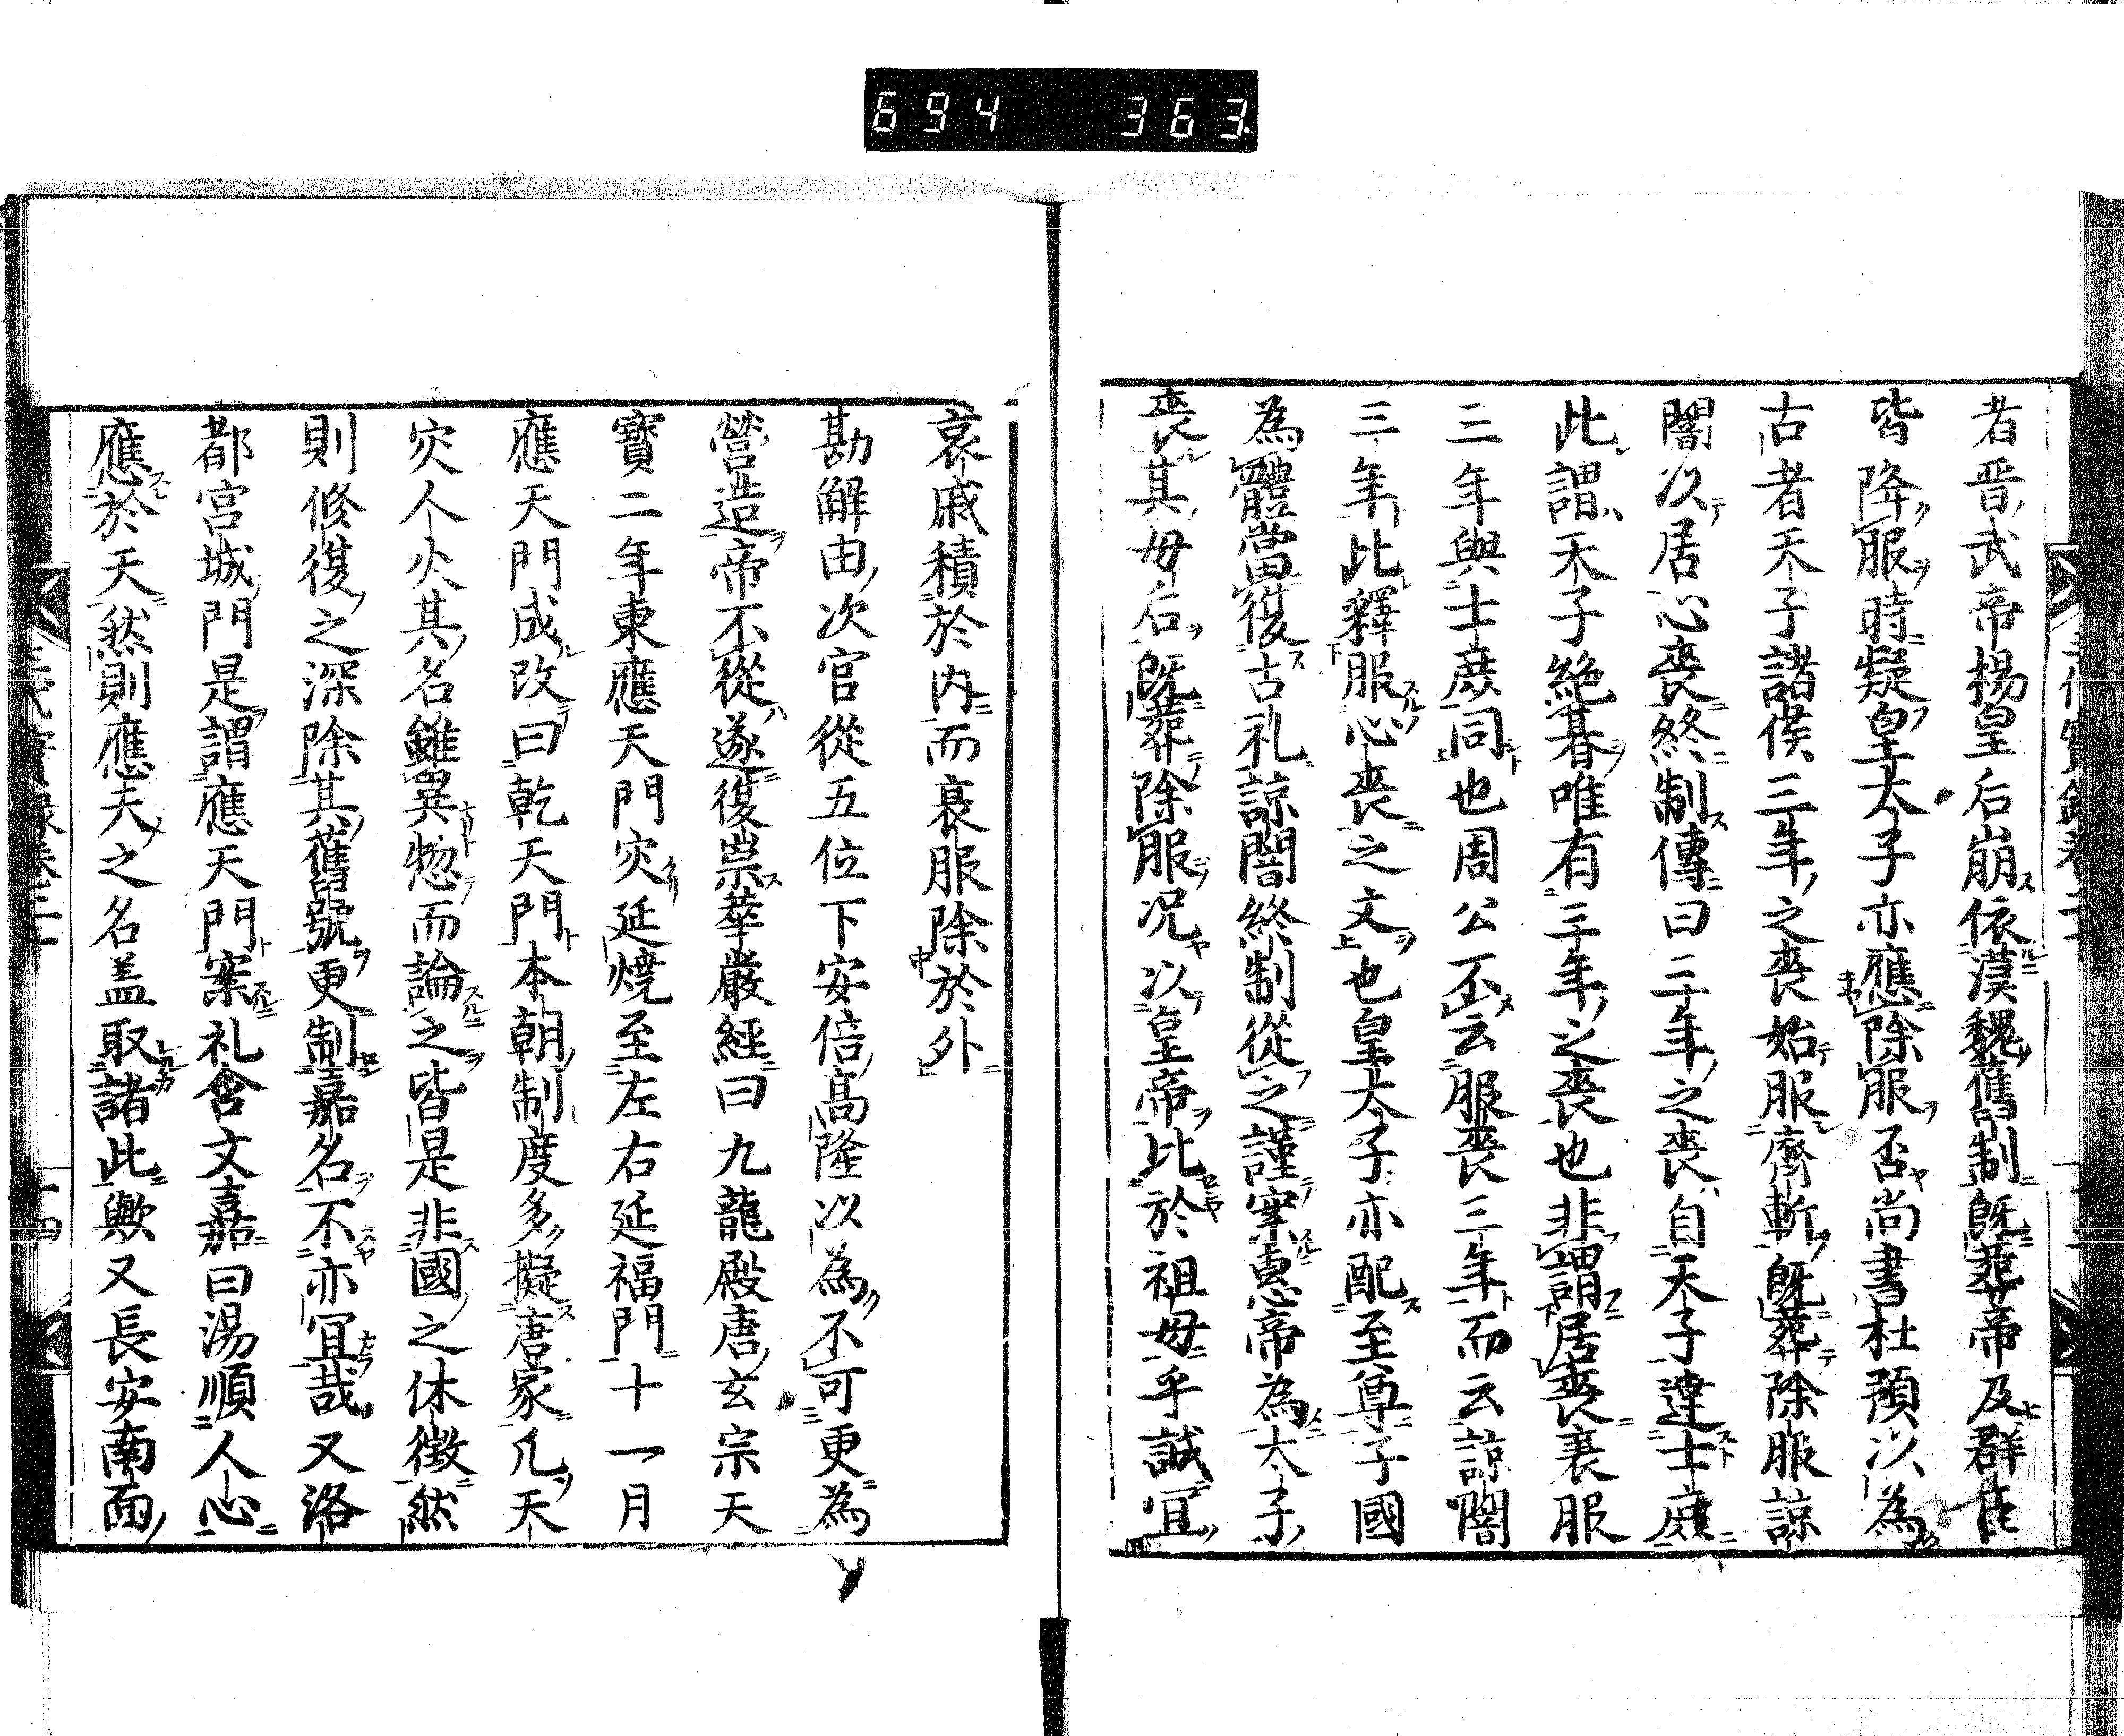 694 363
者晋武帝楊皇后崩依漢魏舊制既葬帝及群臣
皆降服時疑皇太子亦應除服否尚書杜預以為
古者天子諸侯三年之喪始服齊斬既葬除服諒
闇以居心喪終制傳曰三年之喪自天子達士庶
此謂天子絶朞唯有三年之喪也非謂居喪衰服
三年與士庶同也周公不云服喪三年而云諒闇
三年此釋服心喪之文也皇太子亦配至尊子國
為體當復古礼諒闇終制從之謹案惠帝為太子
喪其母后既葬除服况以皇帝比於祖母乎誠宜
哀戚積於内而衰服除於外
勘解由次官從五位下安倍高隆以為不可更為
營造帝不從遂復崇華嚴經曰九龍殿唐玄宗天
寶二年東應天門灾延焼至左右延福門十一月
應天門成改曰乾天門本朝制度多擬唐家凡天
灾人火其名雖異惣而論之皆是非國之休徴然
則修復之深除其舊號更制嘉名不亦宜哉又洛
都宮城門是謂應天門案礼含文嘉曰湯順人心
應於天然則應天之名盖取諸此歟又長安南面